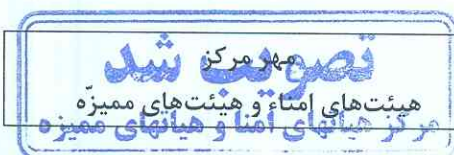 تصویب شد
مهر مرکز
هیئت‌های امناء و هیئت‌های ممیزّه
مرکز هیاتهای امنا و هیاتهای ممیزه